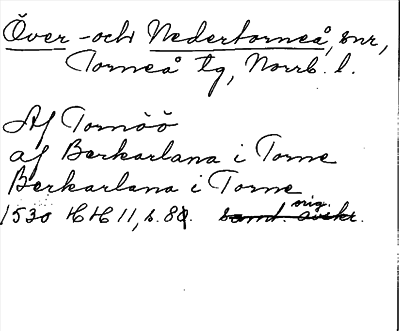 Över- och Nedertorneå, snr,
Torneå tg, Norrb. l.
Af Tornöö
af Berkarlana i Torne
Berkarlana i Torne
1530 HH 11, s. 8 orig.